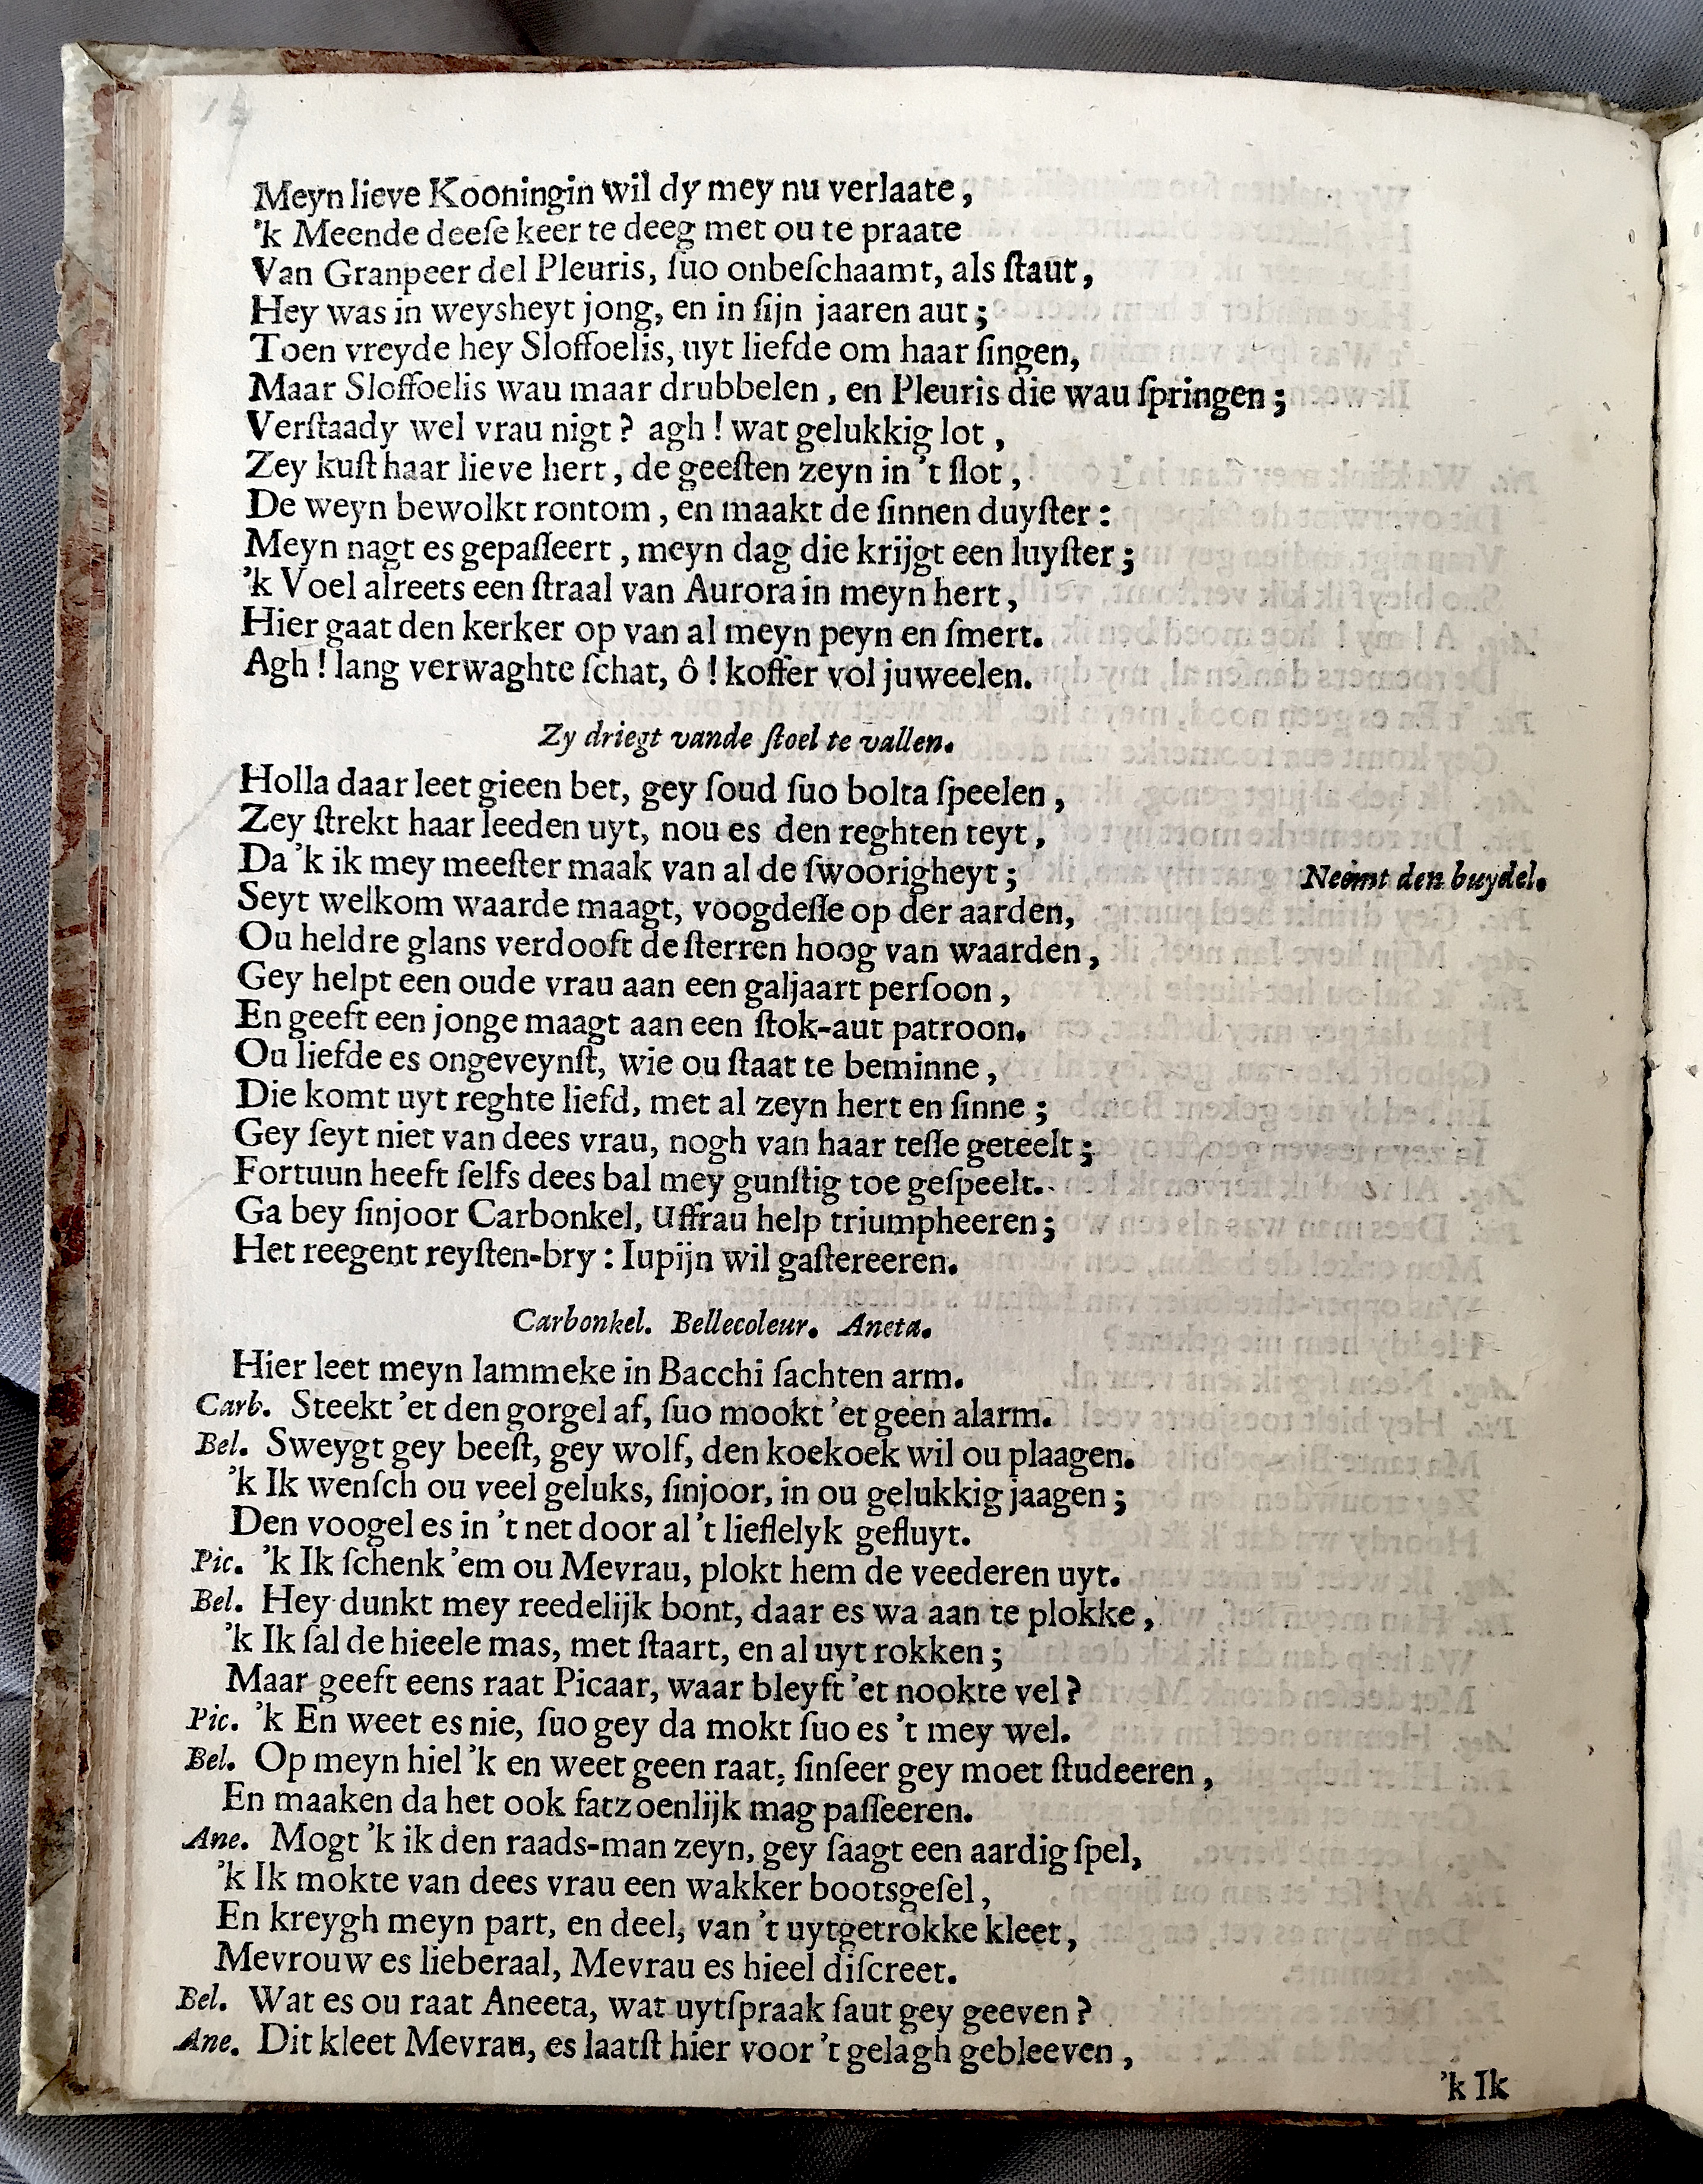 Meyn lieve Kooningin wil dy mey nu verlaate,
'k Meende deeſe keer te deeg met ou te praate
Van Granpeer del Pleuris, ſuo onbeſchaamt, als ſtaut,
Hey was in weysheyt jong, en in ſijn jaaren aut;
Toen vreyde hey Sloffoelis, uyt liefde om haar ſingen,
Maar Sloffoelis wau maar drubbelen, en Pleuris die wau ſpringen;
Verſtaady wel vrau nigt? agh! wat gelukkig lot,
Zey kuſt haar lieve hert, de geeſten zeyn in 't ſlot,
De weyn bewolkt rontom, en maakt de ſinnen duyſter:
Meyn nagt es gepaſſeert, meyn dag die krijgt een luyſter;
'k Voel alreets een ſtraal van Aurora in meyn hert,
Hier gaat den kerker op van al meyn peyn en ſmert.
Agh! lang verwaghte ſchat, ô! koffer vol juweelen.
Zy driegt vande ſtoel te vallen.
Holla daar leet gieen bet, gey ſoud ſuo bolta ſpeelen,
Zey ſtrekt haar leeden uyt, nou es den reghten teyt,
Da 'k ik mey meeſter maak van al de ſwoorigheyt; Neemt den buydel.
Seyt welkom waarde maagt, voogdeſſe op der aarden,
Ou heldre glans verdooft de ſterren hoog van waarden,
Gey helpt een oude vrau aan een galjaart perſoon,
En geeft een jonge maagt aan een ſtok-aut patroon.
Ou liefde es ongeveynſt, wie ou ſtaat te beminne,
Die komt uyt reghte liefd, met al zeyn hert en ſinne;
Gey ſeyt niet van dees vrau, nogh van haar teſſe geteelt;
Fortuun heeft ſelfs dees bal mey gunſtig toe geſpeelt.
Ga bey ſinjoor Carbonkel, Uffrau help triumpheeren;
Het reegent reyſten-bry: Iupijn wil gaſtereeren.
Carbonkel. Bellecoleur. Aneta.
Hier leet meyn lammeke in Bacchi ſachten arm.
Carb. Steekt 'et den gorgel af, ſuo mookt 'et geen alarm.
Bel. Sweygt gey beeſt, gey wolf, den koekoek wil ou plaagen.
'k Ik wenſch ou veel geluks, ſinjoor, in ou gelukkig jaagen;
Den voogel es in 't net door al 't lieflelyk gefluyt.
Pic. 'k Ik ſchenk 'em ou Mevrau, plokt hem de veederen uyt.
Bel. Hey dunkt mey reedelijk bont, daar es wa aan te plokke,
'k Ik ſal de hieele mas, met ſtaart, en al uyt rokken;
Maar geeft eens raat Picaar, waar bleyft 'et nookte vel?
Pic. 'k En weet es nie, ſuo gey da mokt ſuo es 't mey wel.
Bel. Op meyn hiel 'k en weet geen raat, ſinſeer gey moet ſtudeeren,
En maaken da het ook fatzoenlijk mag paſſeeren.
Ane. Mogt 'k ik den raads-man zeyn, gey ſaagt een aardig ſpel,
'k Ik mokte van dees vrau een wakker bootsgeſel,
En kreygh meyn part, en deel, van 't uytgetrokke kleet,
Mevrouw es lieberaal, Mevrau es hieel diſcreet.
Bel. Wat es ou raat Aneeta, wat uytſpraak ſaut gey geeven?
Ane. Dit kleet Mevrau, es laatſt hier voor 't gelagh gebleeven,
'k Ik